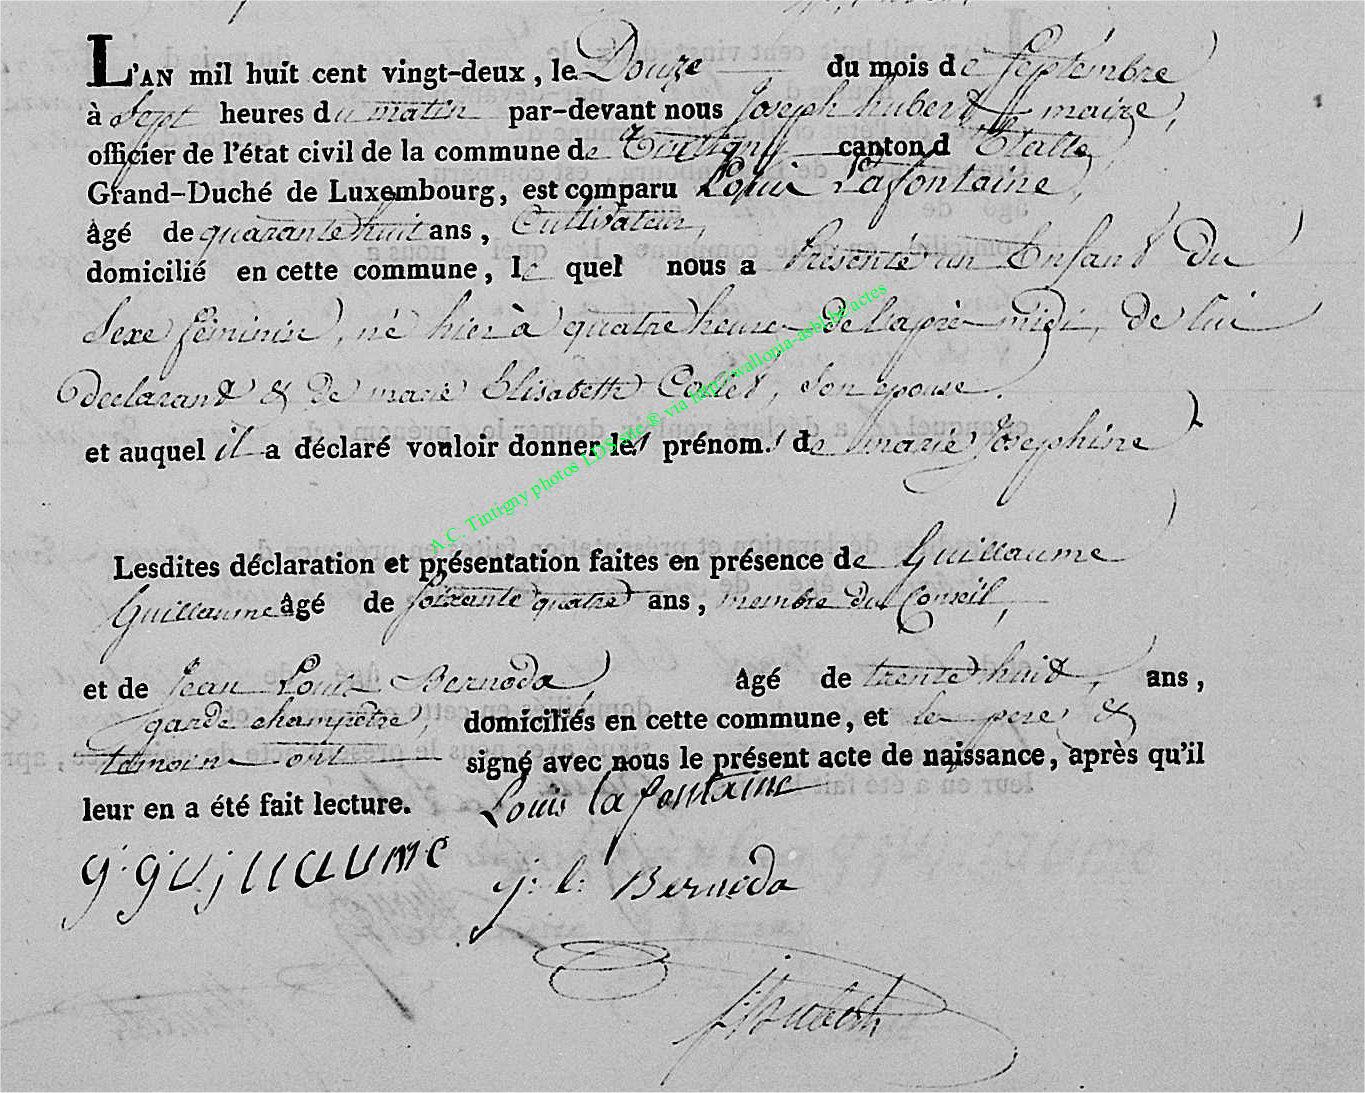 L'AN mil huit cent vingt-deux, le Douze du mois de Septembre
à Sept heures du matin par-devant nous Joseph hubert maire,
officier de l'état civil de la commune de Tintigny canton d'Etalle
Grand-Duché de Luxembourg, est comparu Louis Lafontaine,
âgé de quarante huit ans, Cultivateur,
domicilié en cette commune, le quel nous a Présenté un Enfant Du
Sexe féminin, né hier à quatre heure de l'apré midi, De lui
Declarant & De marie Elisabeth Collet, Son epouse.
et auquel il a déclaré vouloir donner les prénoms de marie Josephine
A.C. Tintigny photos LDS site ® via http://wallonia-asbl.be/actes
Lesdites déclaration et présentation faites en présence de Guillaume
Guillaume âgé de Soixante quatre ans, membre du Conseil,
et de Jean Louis Bernoda, âgé de trente huit, ans,
garde champêtre, domiciliés en cette commune, et le pere &
temoin ont signé avec nous le présent acte de naissance, après qu'il
leur en a été fait lecture. Louis lafontaine
g. guillaume j: l: Bernoda